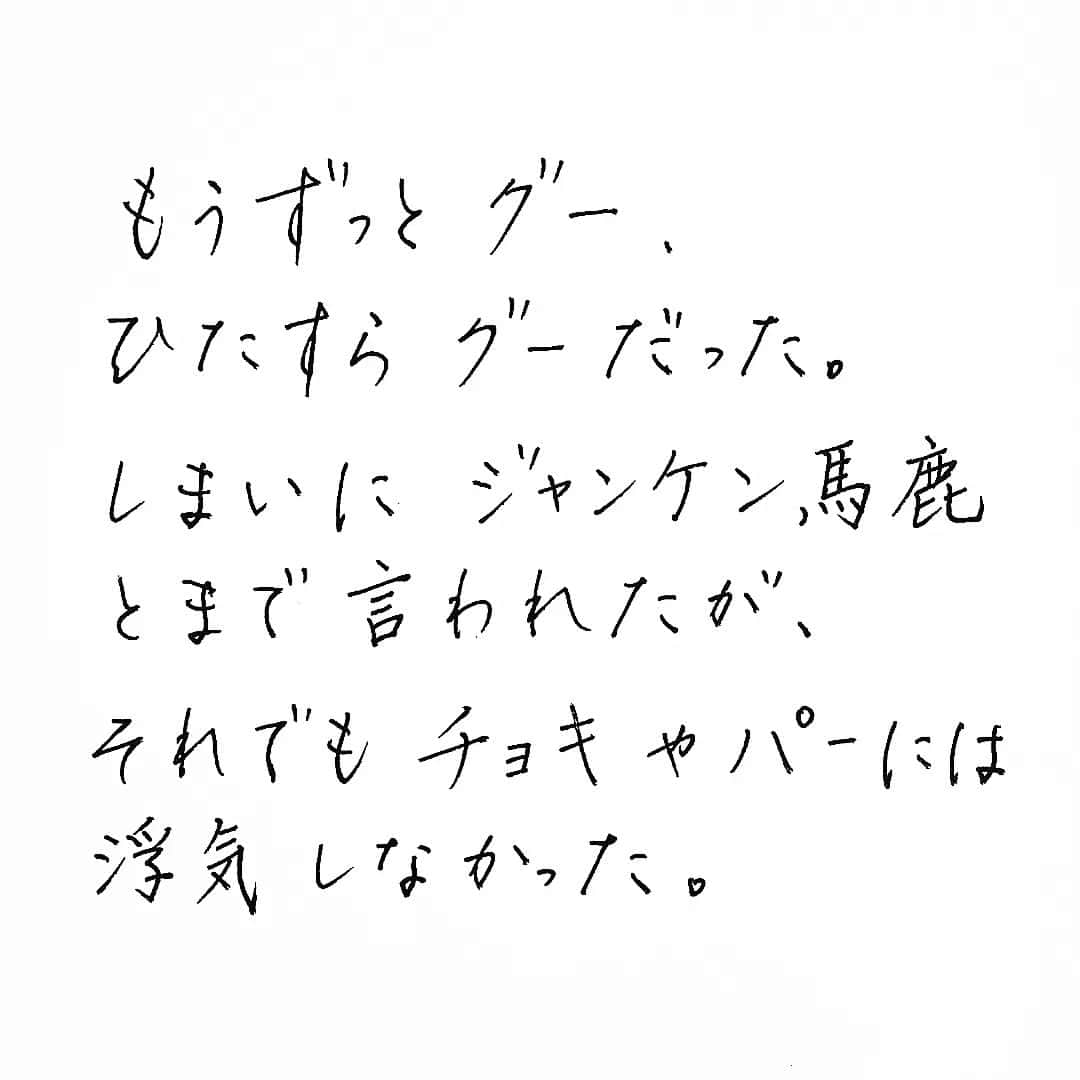 もうずっとグー、
ひたすらグーだった。
しまいにジャンケン、馬鹿
とまで言われたが、
それでもチョキやパーには
浮気しなかった。